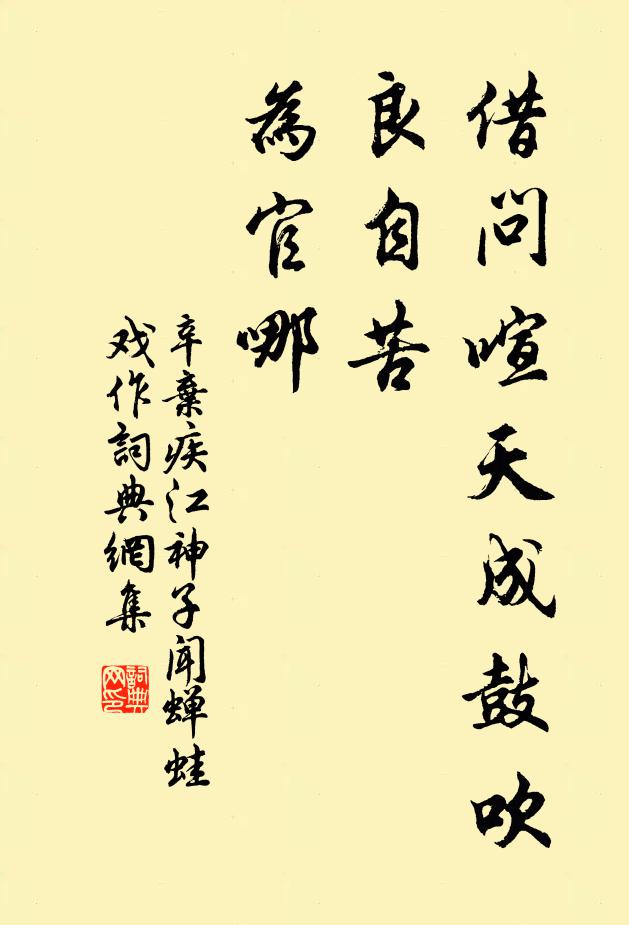 借问喧天成鼓吹
良自苦
為官哪
辛棄疾江神子闻蝉蛙
戏作詞典網集
詞典网印